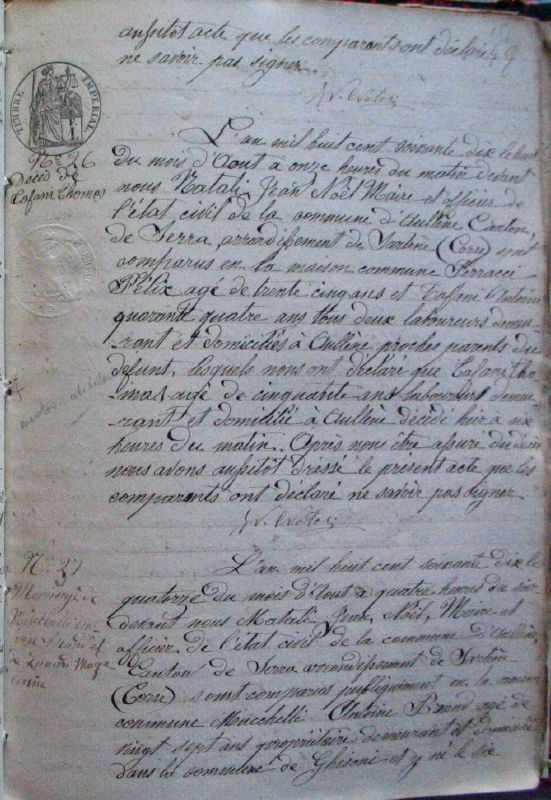 aussitot acte que les comparants ont déclaré
ne savoir pas signer
TIMBRE IMPERIAL
N° 26
Décès de
Tafani Thomas
L'an mil huit cent soixante dix le huit
du mois d'Aout à onze heures du matin devant
nous Natali Jean Noël Maire et officier de
l'état civil de la commune d'Aullène Canton
de Serra, arrondissement de Sartène (Corse) sont
comparus en la maison commune Ferracci
Félix agé de trente cinq ans et Tafani Antoine
quarante quatre ans tous deux laboureurs demeu
rant et domiciliés à Aullène proches parents du
défunt, lesquels nous ont déclaré que Tafani Tho
mas agé de cinquante ans laboureur demeu
rant et domicilié à Aullène décédé hier à six
heures du matin. Après nous être assuré du décès
nous avons aussitot dressé le présent acte que les
comparants ont déclaré ne savoir pas signer
N° 27
Mariage de
L'an mil huit cent soixante dix le
quatorze du mois d'Aout à quatre heures du soir
devant nous Natali Jean Noël, Maire et
officier de l'état civil de la commune d'Aullène,
Canton de Serra arrondissement de Sartène
(Corse) sont comparus publiquement en la maison
commune Mucchielli Antoine agé de
vingt sept ans propriétaire demeurant et domicilié
dans la commune de Ghisoni et y né le dix